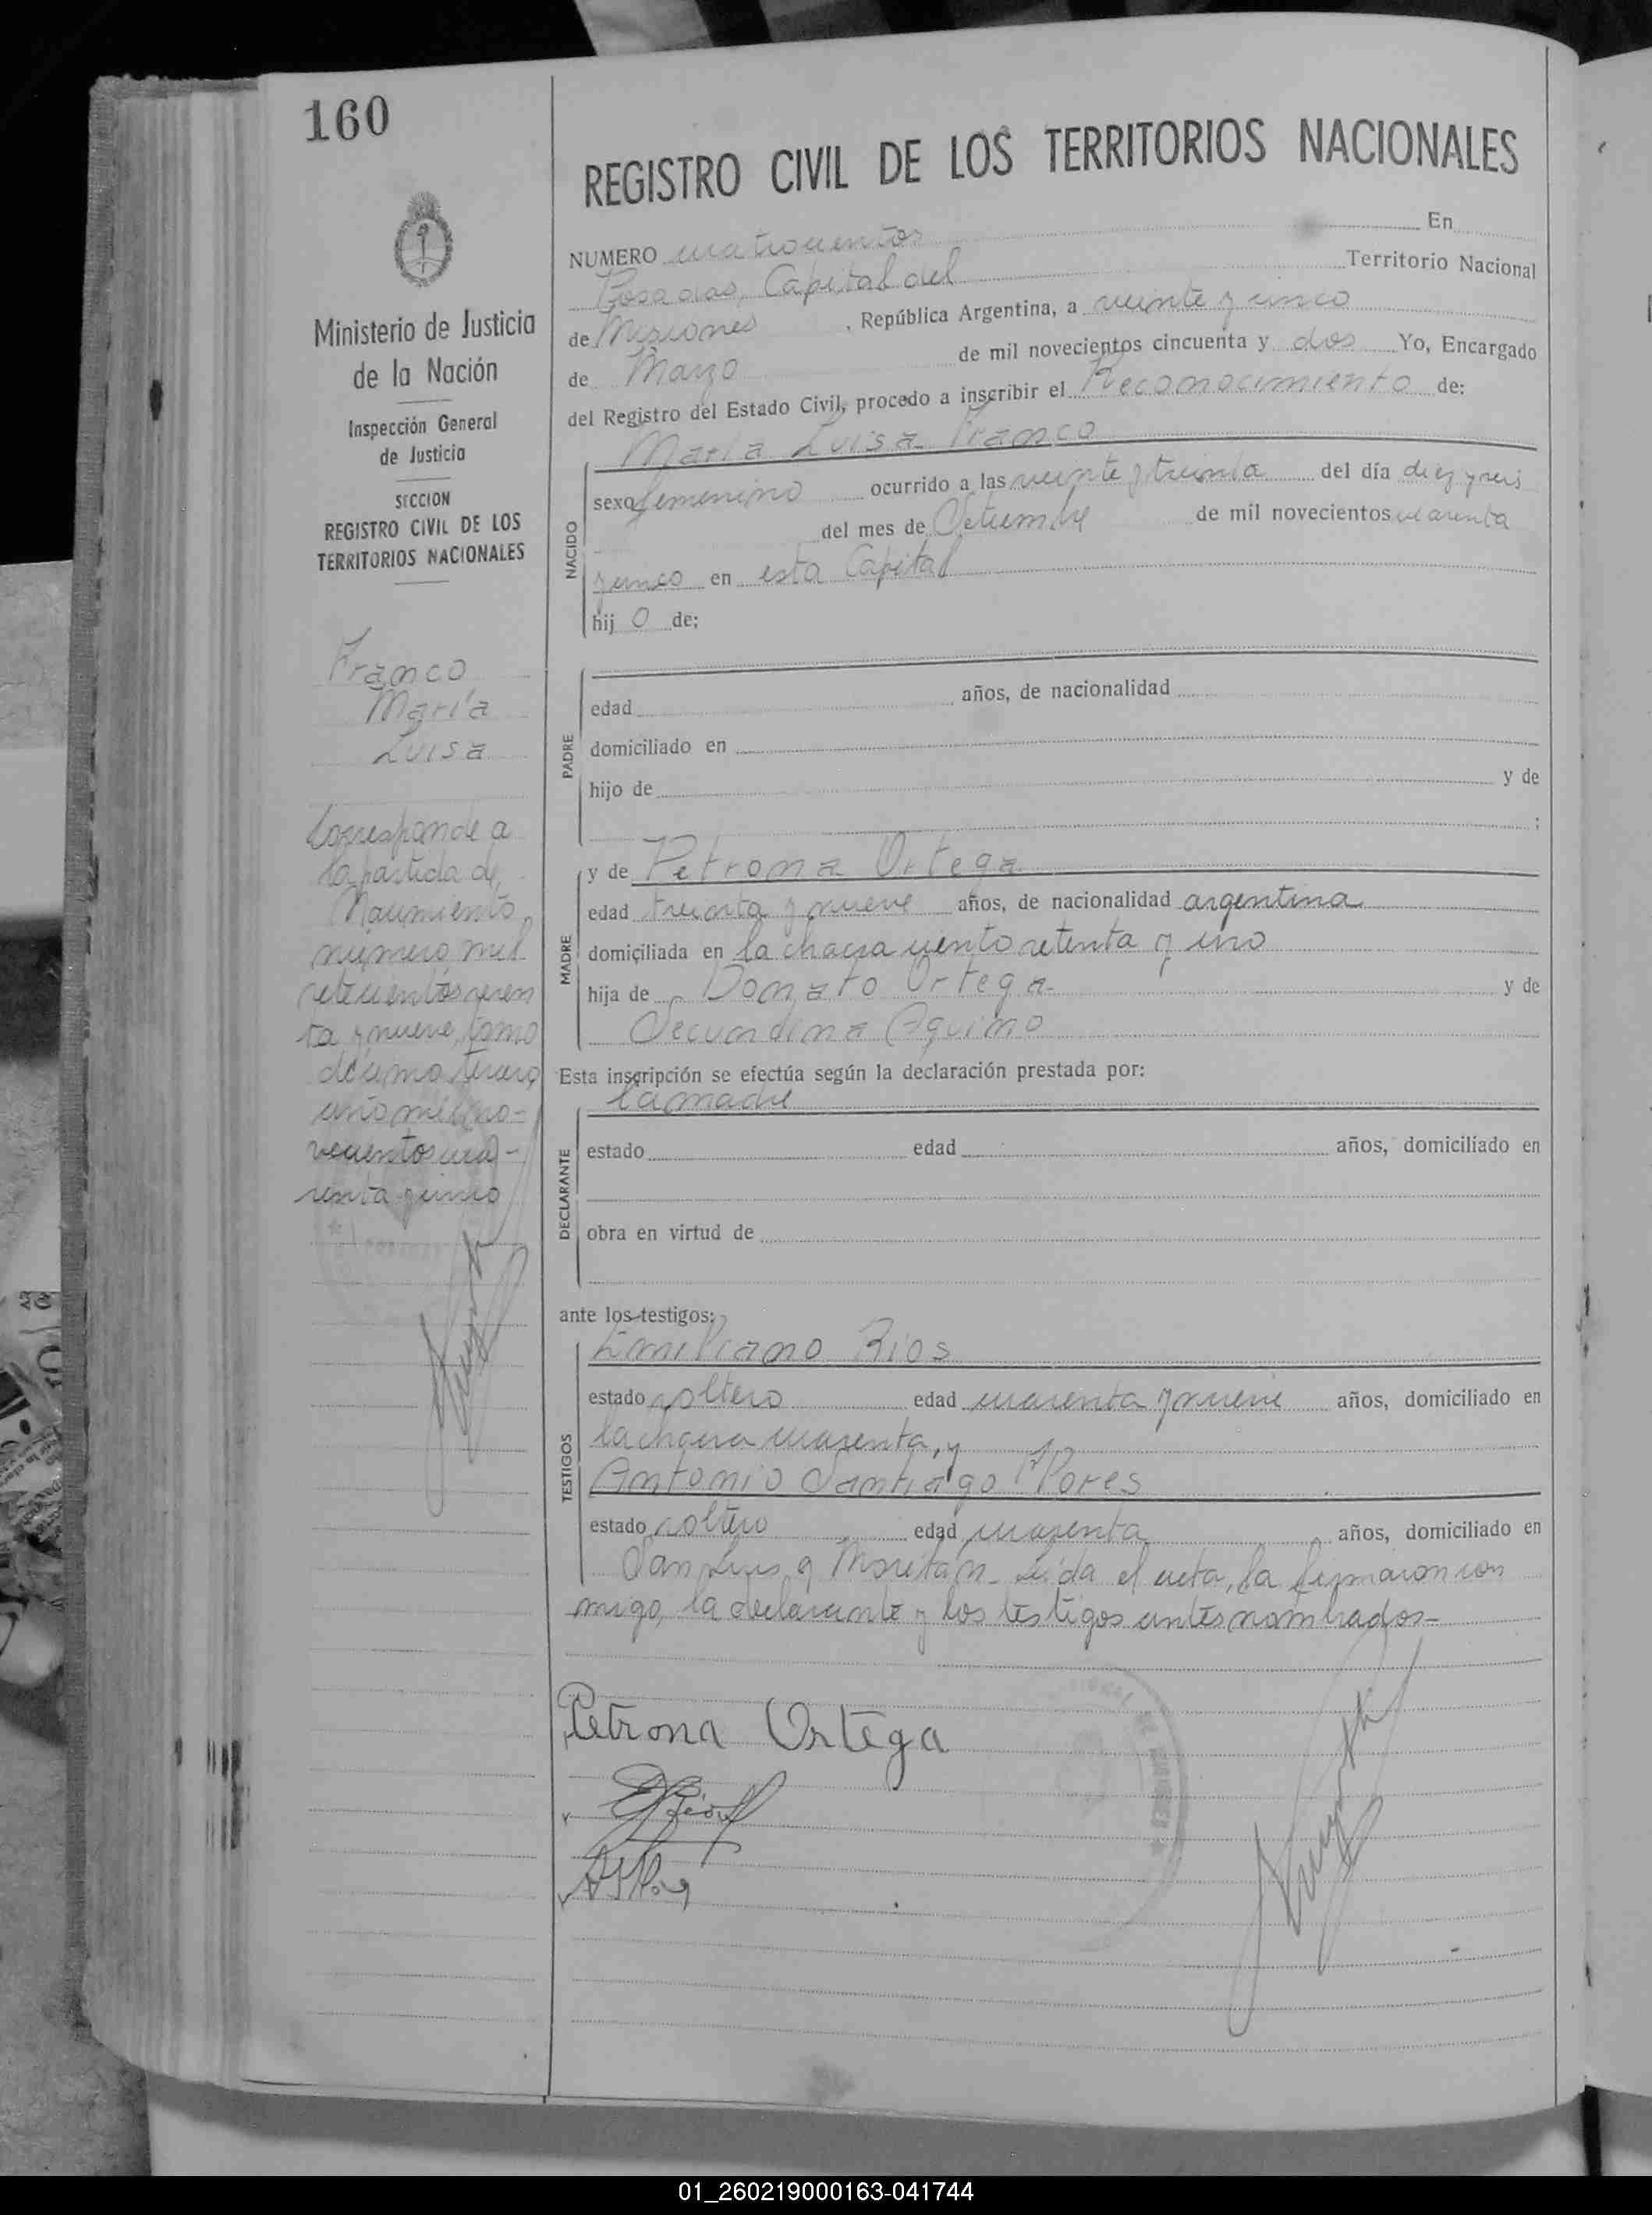 160
REGISTRO CIVIL DE LOS TERRITORIOS NACIONALES
Ministerio de Justicia
de la Nación
Inspección General
de Justicia
SECCION
REGISTRO CIVIL DE LOS
TERRITORIOS NACIONALES
Franco
María
Luisa
Corresponde a
la partida de
Nacimiento
número mil
setecientos sesen
ta y nueve, tomo
décimo tercero
año mil no-
vecientos cua-
renta y cinco
NUMERO cuatrocientos En
Posadas, Capital del Territorio Nacional
de Misiones, República Argentina, a veinte y cinco
de Marzo de mil novecientos cincuenta y dos Yo, Encargado
del Registro del Estado Civil, procedo a inscribir el Reconocimiento de:
María Luisa Franco
NACIDO
sexo femenino ocurrido a las veinte y treinta del día diez y seis
del mes de Setiembre de mil novecientos cuarenta
y cinco en esta Capital
hij o de:
PADRE
edad años, de nacionalidad
domiciliado en
hijo de y de
;
MADRE
y de Petrona Ortega
edad treinta y nueve años, de nacionalidad argentina
domiciliada en la chacra ciento setenta y uno
hija de Donato Ortega y de
Secundina Aquino
Esta inscripción se efectúa según la declaración prestada por:
la madre
DECLARANTE
estado edad años, domiciliado en
obra en virtud de
ante los testigos:
Emiliano Rios
TESTIGOS
estado soltero edad cuarenta y nueve años, domiciliado en
la chacra cuarenta, y
Antonio Santiago Flores
estado soltero edad cuarenta años, domiciliado en
San Luis y Moritán. Leída el acta, la firmaron con
migo, la declarante y los testigos antes nombrados-
Petrona Ortega
01_260219000163-041744